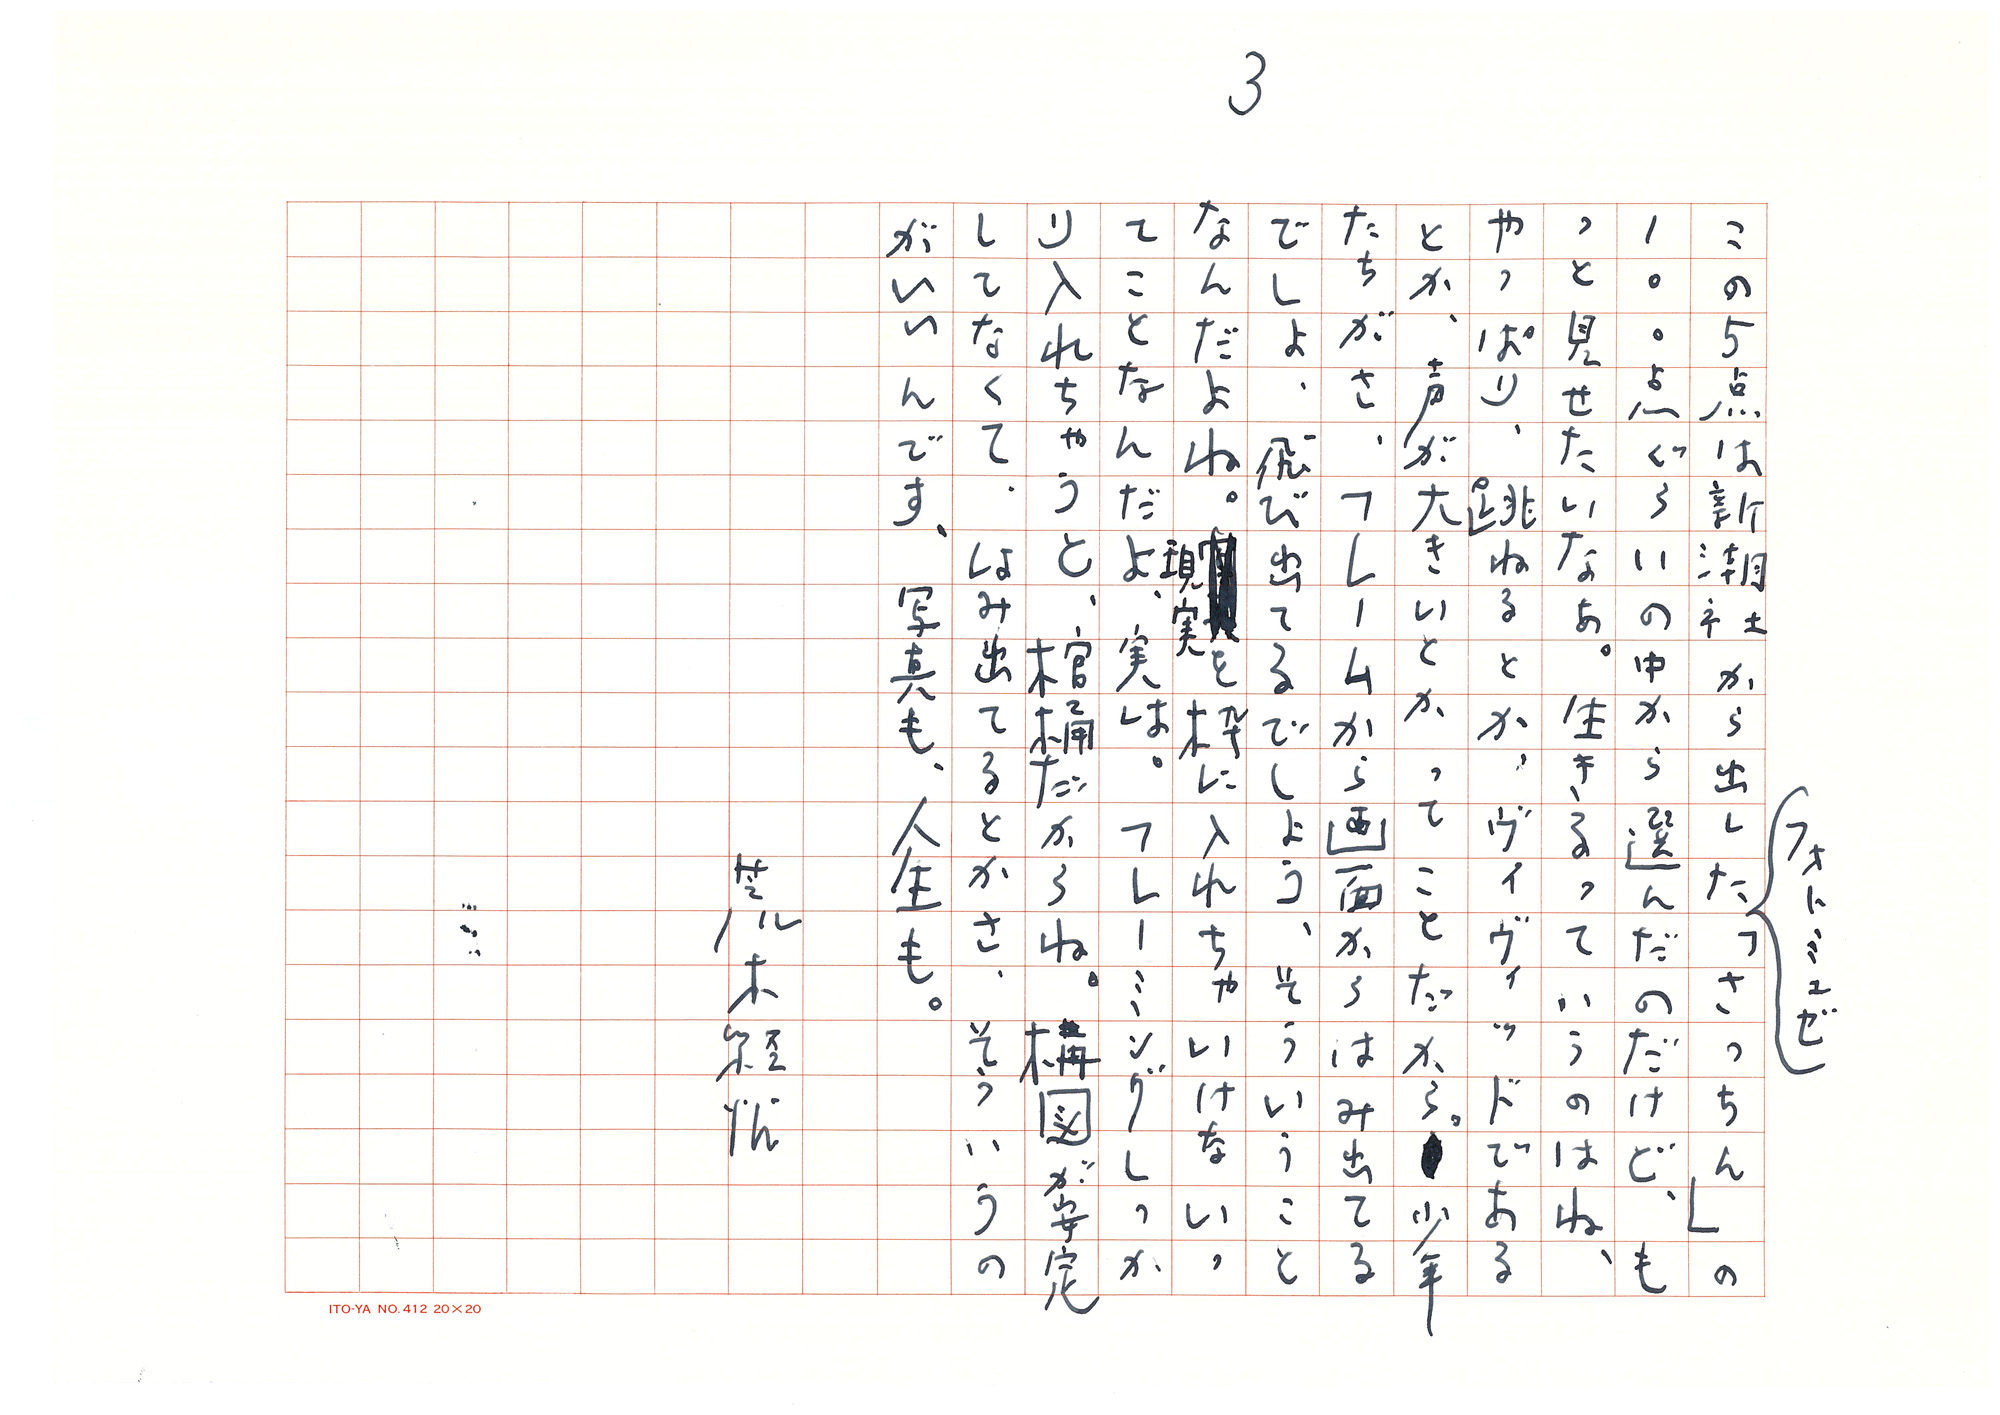 3
フォトミュゼ
この5点は新潮社から出した「さっちん」の
一〇〇点ぐらいの中から選んだのだけど、も
っと見せたいなあ。生きるっていうのはね、
やっぱり、跳ねるとか、ヴィヴィッドである
とか、声が大きいとかってことだから。少年
たちがさ、フレームから画面からはみ出てる
でしよ、飛び出てるでしよう、そういうこと
なんだよね。現実を枠に入れちゃいけないっ
てことなんだよ、実は。フレーミングしっか
り入れちゃうと、棺桶だからね。構図が安定
してなくて、はみ出てるとかさ、そういうの
がいいんです、写真も、人生も。
荒木経惟
ITO-YA NO.412 20×20